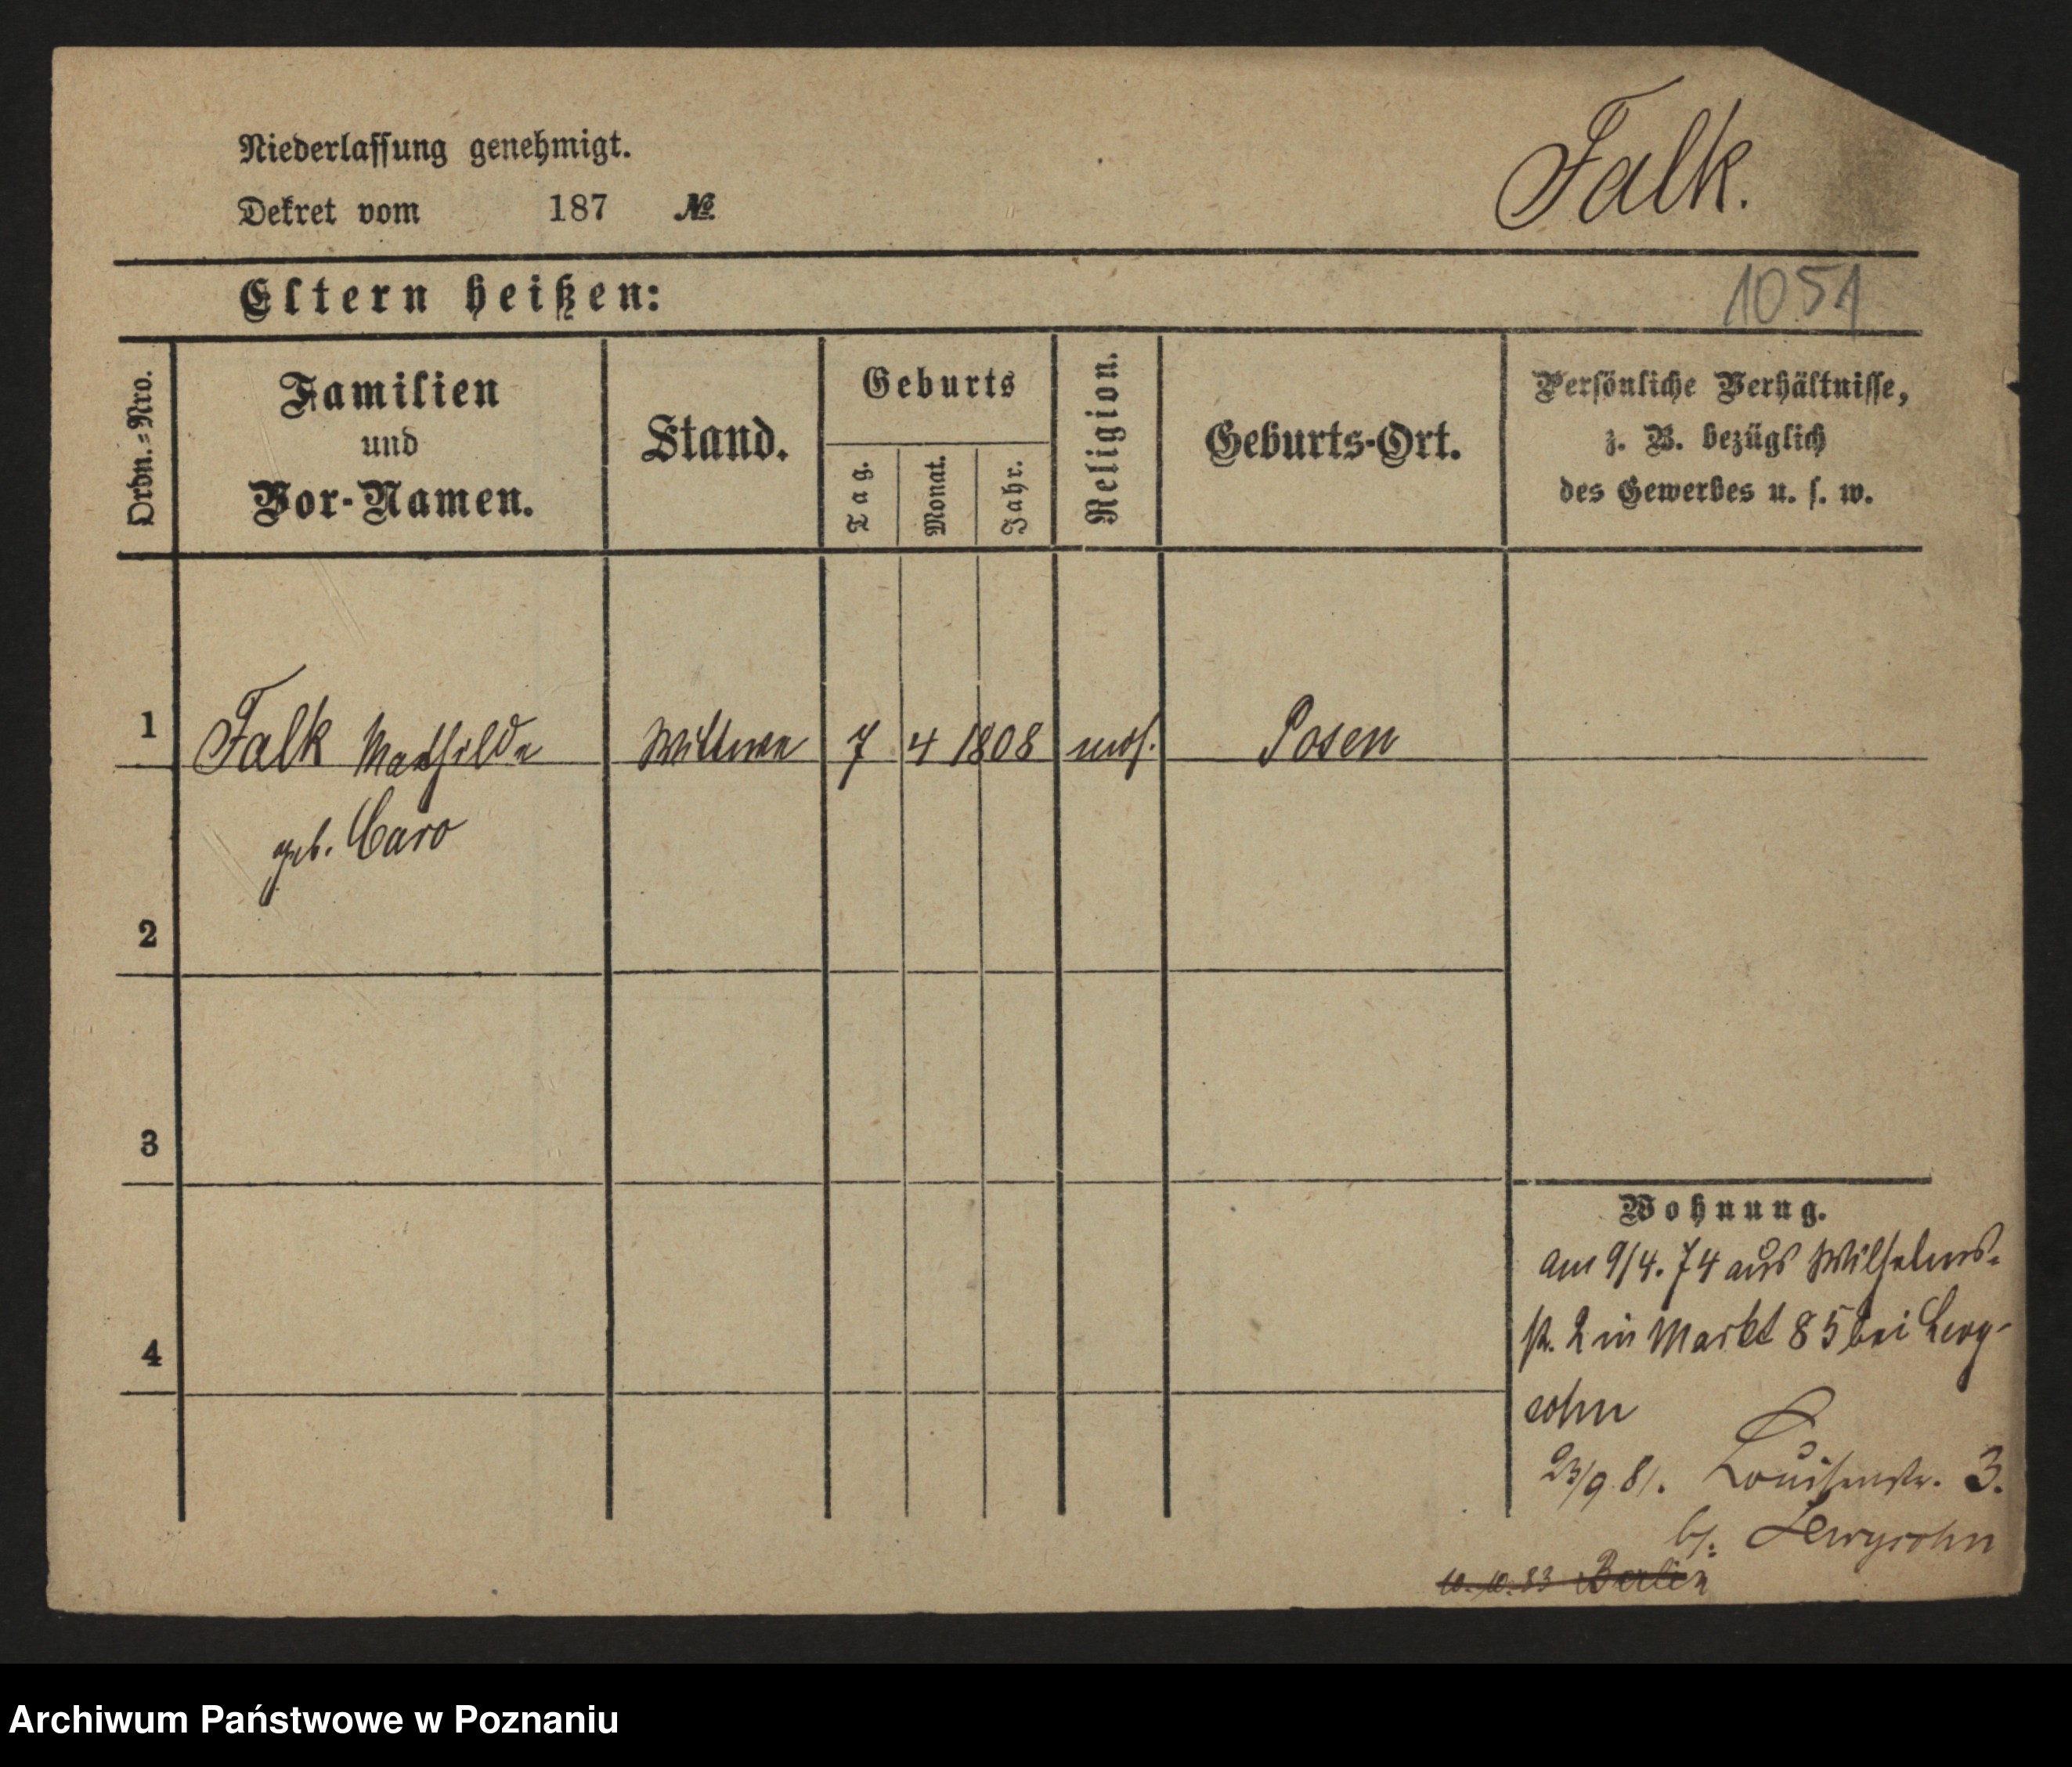 Niederlassung genehmigt.
Dekret vom 187 №
Falk.
Eltern heißen:
1051
Ordn.-Nro.
Familien
und
Vor-Namen.
Stand.
Geburts
Tag.
Monat.
Jahr.
Religion.
Geburts-Ort.
Persönliche Verhältnisse,
z. B. bezüglich
des Gewerbes u. s. w.
1 Falk Mathilde Wittwe 7 4 1808 mos. Posen
geb. Caro
2
3
4
Wohnung.
am 9/4. 74 aus Wilhelms-
str. 2 in Markt 85 bei Levy-
sohn
23/9 81. Louisenstr. 3.
b/: Lewysohn
10. 10. 83 Berlin
Archiwum Państwowe w Poznaniu